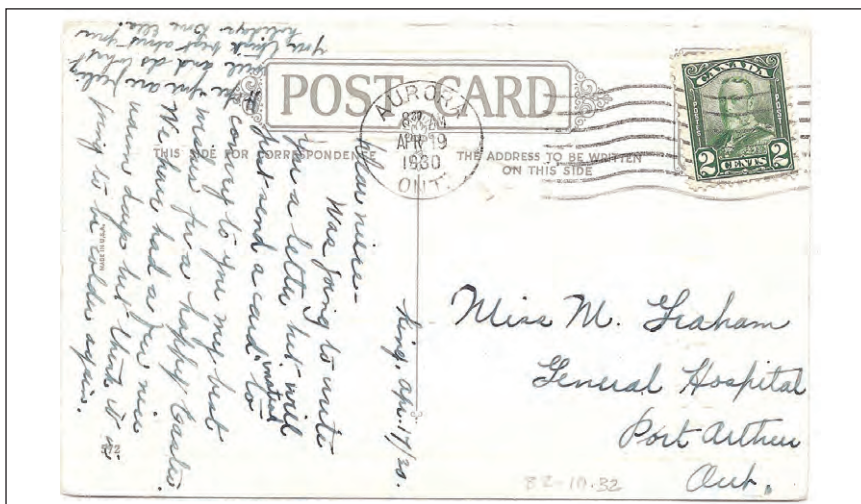 POST CARD
THIS SIDE FOR CORRESPONDENCE
THE ADDRESS TO BE WRITTEN
ON THIS SIDE
AURORA
APR 19
1930
ONT.
CANADA
2 CENTS
MADE IN U.S.A.
572
King, Apr. 17/30.
Dear niece-
Was going to write
you a letter but will
just send a card instead to
convey to you my best
wishes for a happy Easter.
We have had a few nice
warm days but think it is
going to be colder again.
Hope you are feeling
well and do what
you think best about your
holidays. Love Ella.
Miss M. Graham
General Hospital
Port Arthur
Ont.
82-10.32